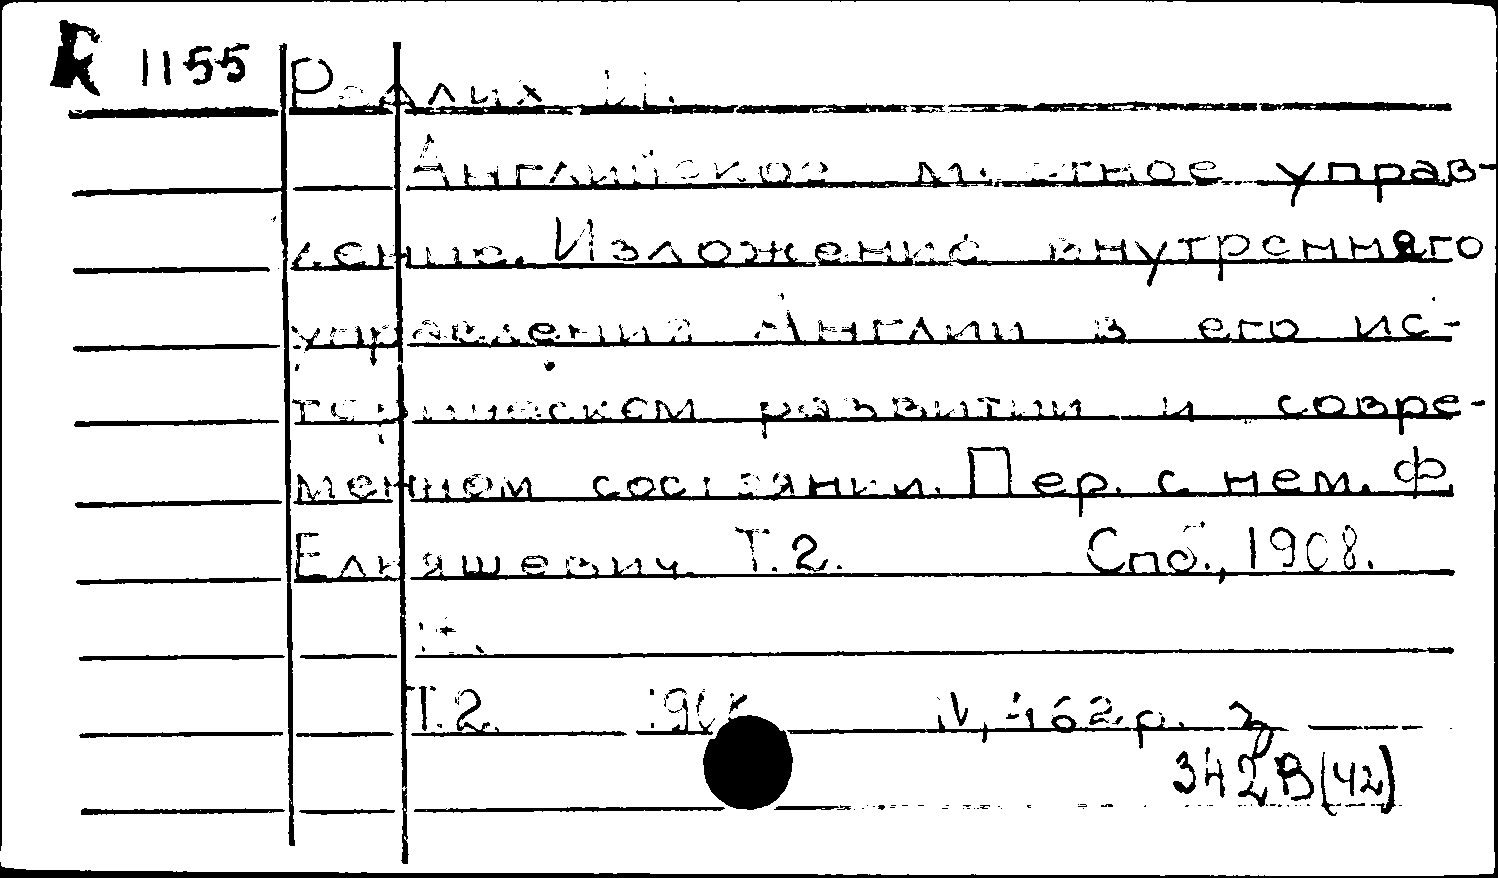 К 1155
Редлих И.
Английское местное управ-
ление. Изложение внутреннего
управления Англии в его ис-
торическом развитии и совре-
менном состоянии. Пер. с нем. Ф.
Ельяшевич. Т.2. Спб., 1908.
Т.2. 1908 IV, 462 р.
342В(42)